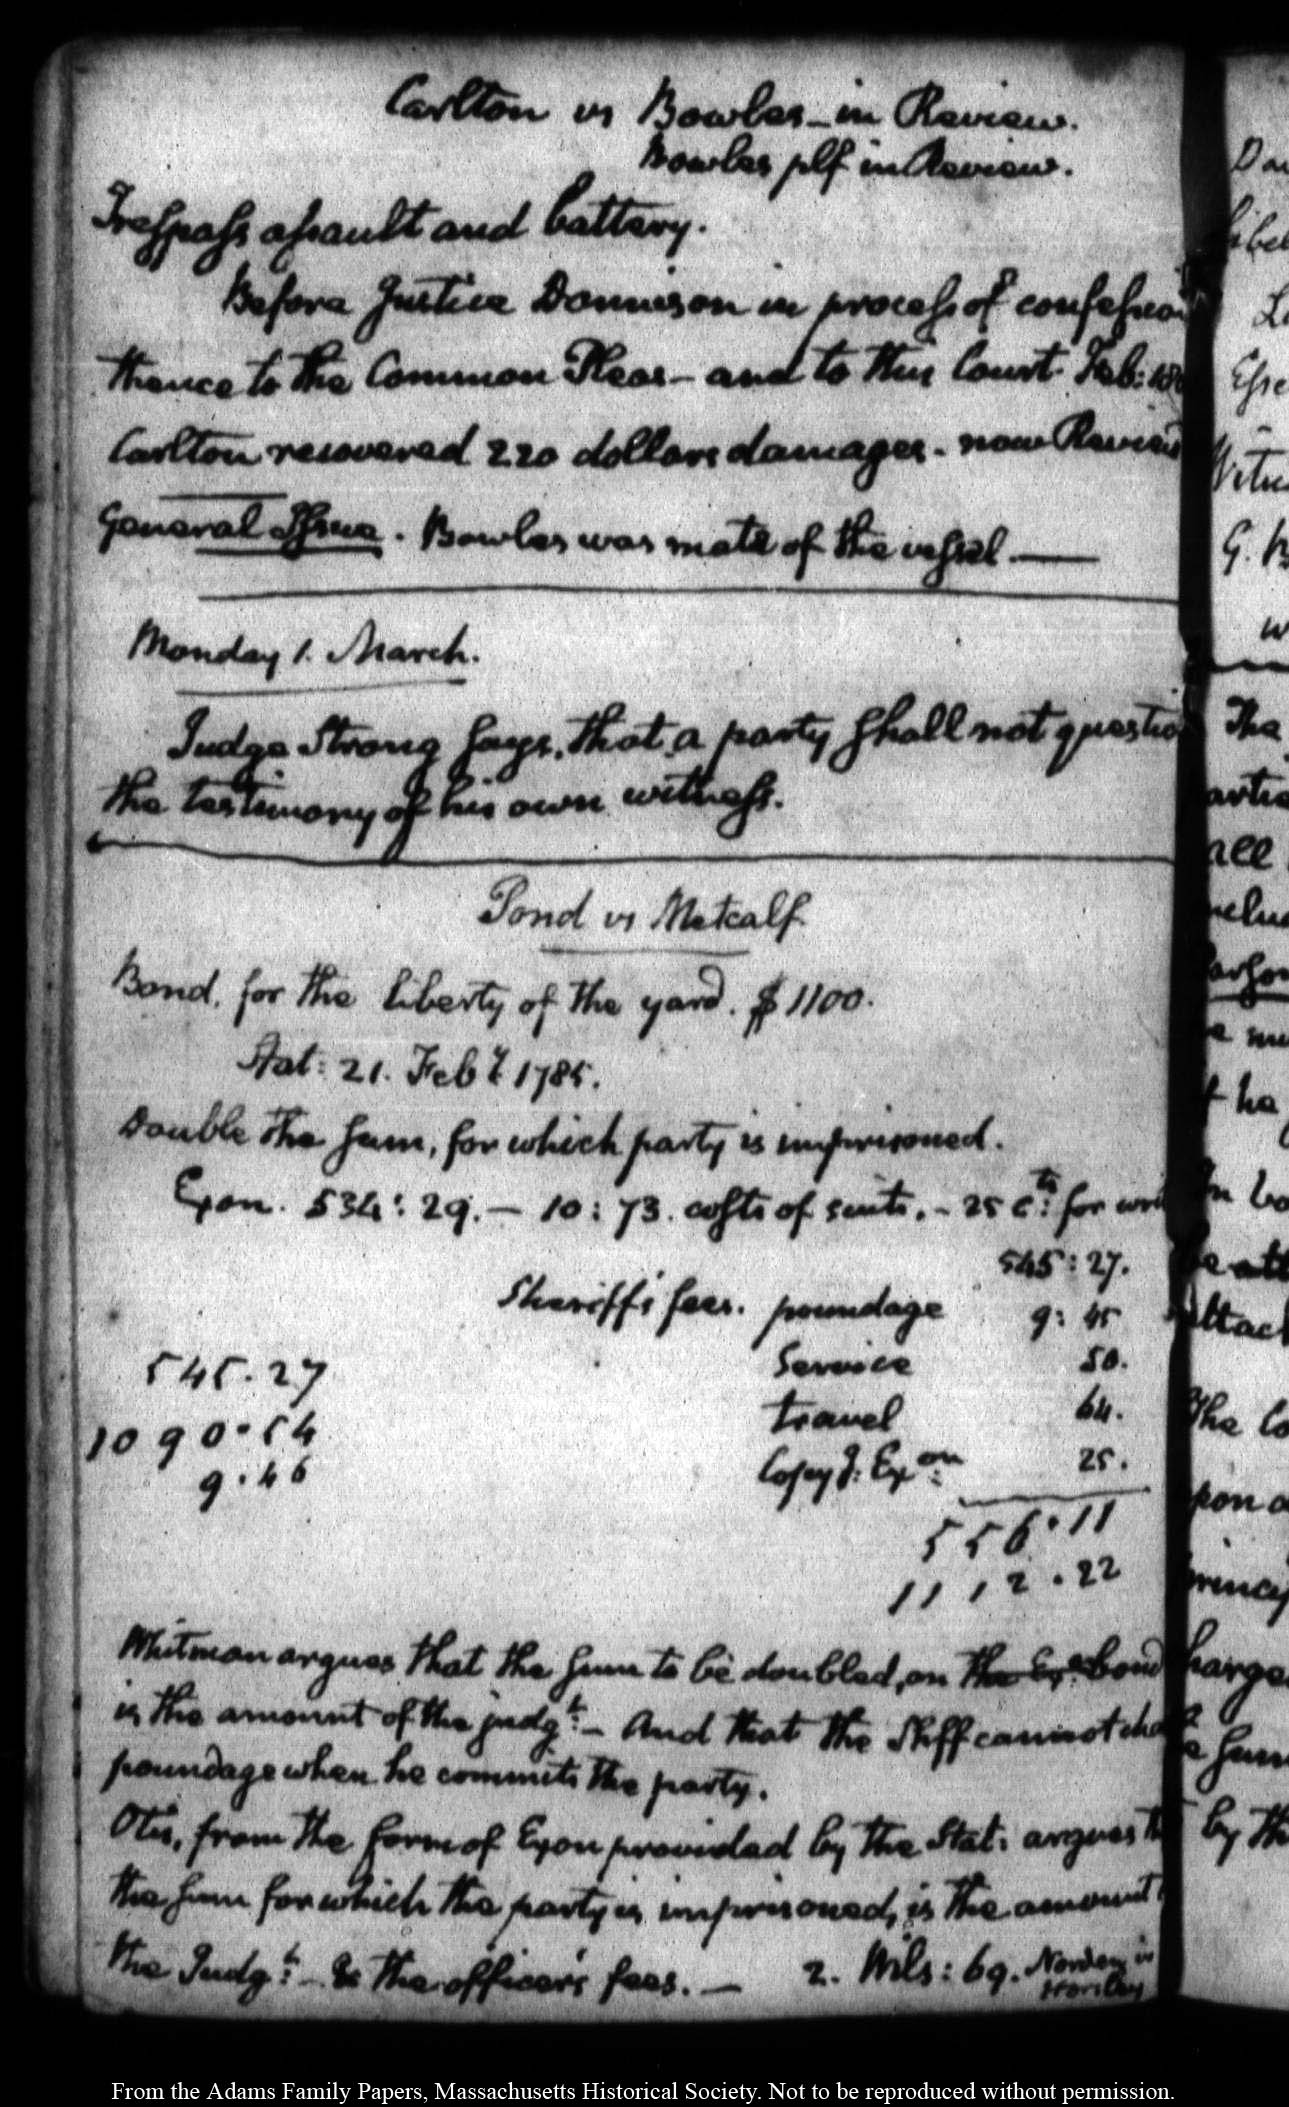 Carlton vs Bowles - in Review.
Bowles plf in Review.
Trespass assault and battery.
Before Justice Dennison in process of confession
thence to the Common Pleas - and to this Court. Feb: 180
Carlton recovered 220 dollars damages - now Review
General Issue. Bowles was mate of the vessel
Monday 1. March.
Judge Strong says, that a party shall not questio
the testimony of his own witness.
Pond vs Metcalf
Bond, for the liberty of the yard. $1100.
Stat: 21. Feby. 1785.
Double the sum, for which party is imprisoned.
Exon. 534: 29. - 10: 73. costs of suits. - 25 cts: for writ
545: 27.
Sheriff's fees. poundage 9: 45
545.27 Service 50.
1090.54 travel 64.
9.46 Copy of: Exon: 25.
556.11
1112.22
Whitman argues that the sum to be doubled, on the Exon bond
is the amount of the judgt: - And that the Shff cannot cha
poundage when he commits the party.
Otis, from the form of Exon provided by the Stat: argues th
the sum for which the party is imprisoned, is the amount
the Judgt: - & the officer's fees. - 2. Wils: 69. Norden in
Horsley
Dou
libel
Esse
Witn
G. B
w
The
artie
all
nclud
arson
e mu
t he
In bo
e att
attach
The Co
pon a
princip
harge
e sum
by th
From the Adams Family Papers, Massachusetts Historical Society. Not to be reproduced without permission.